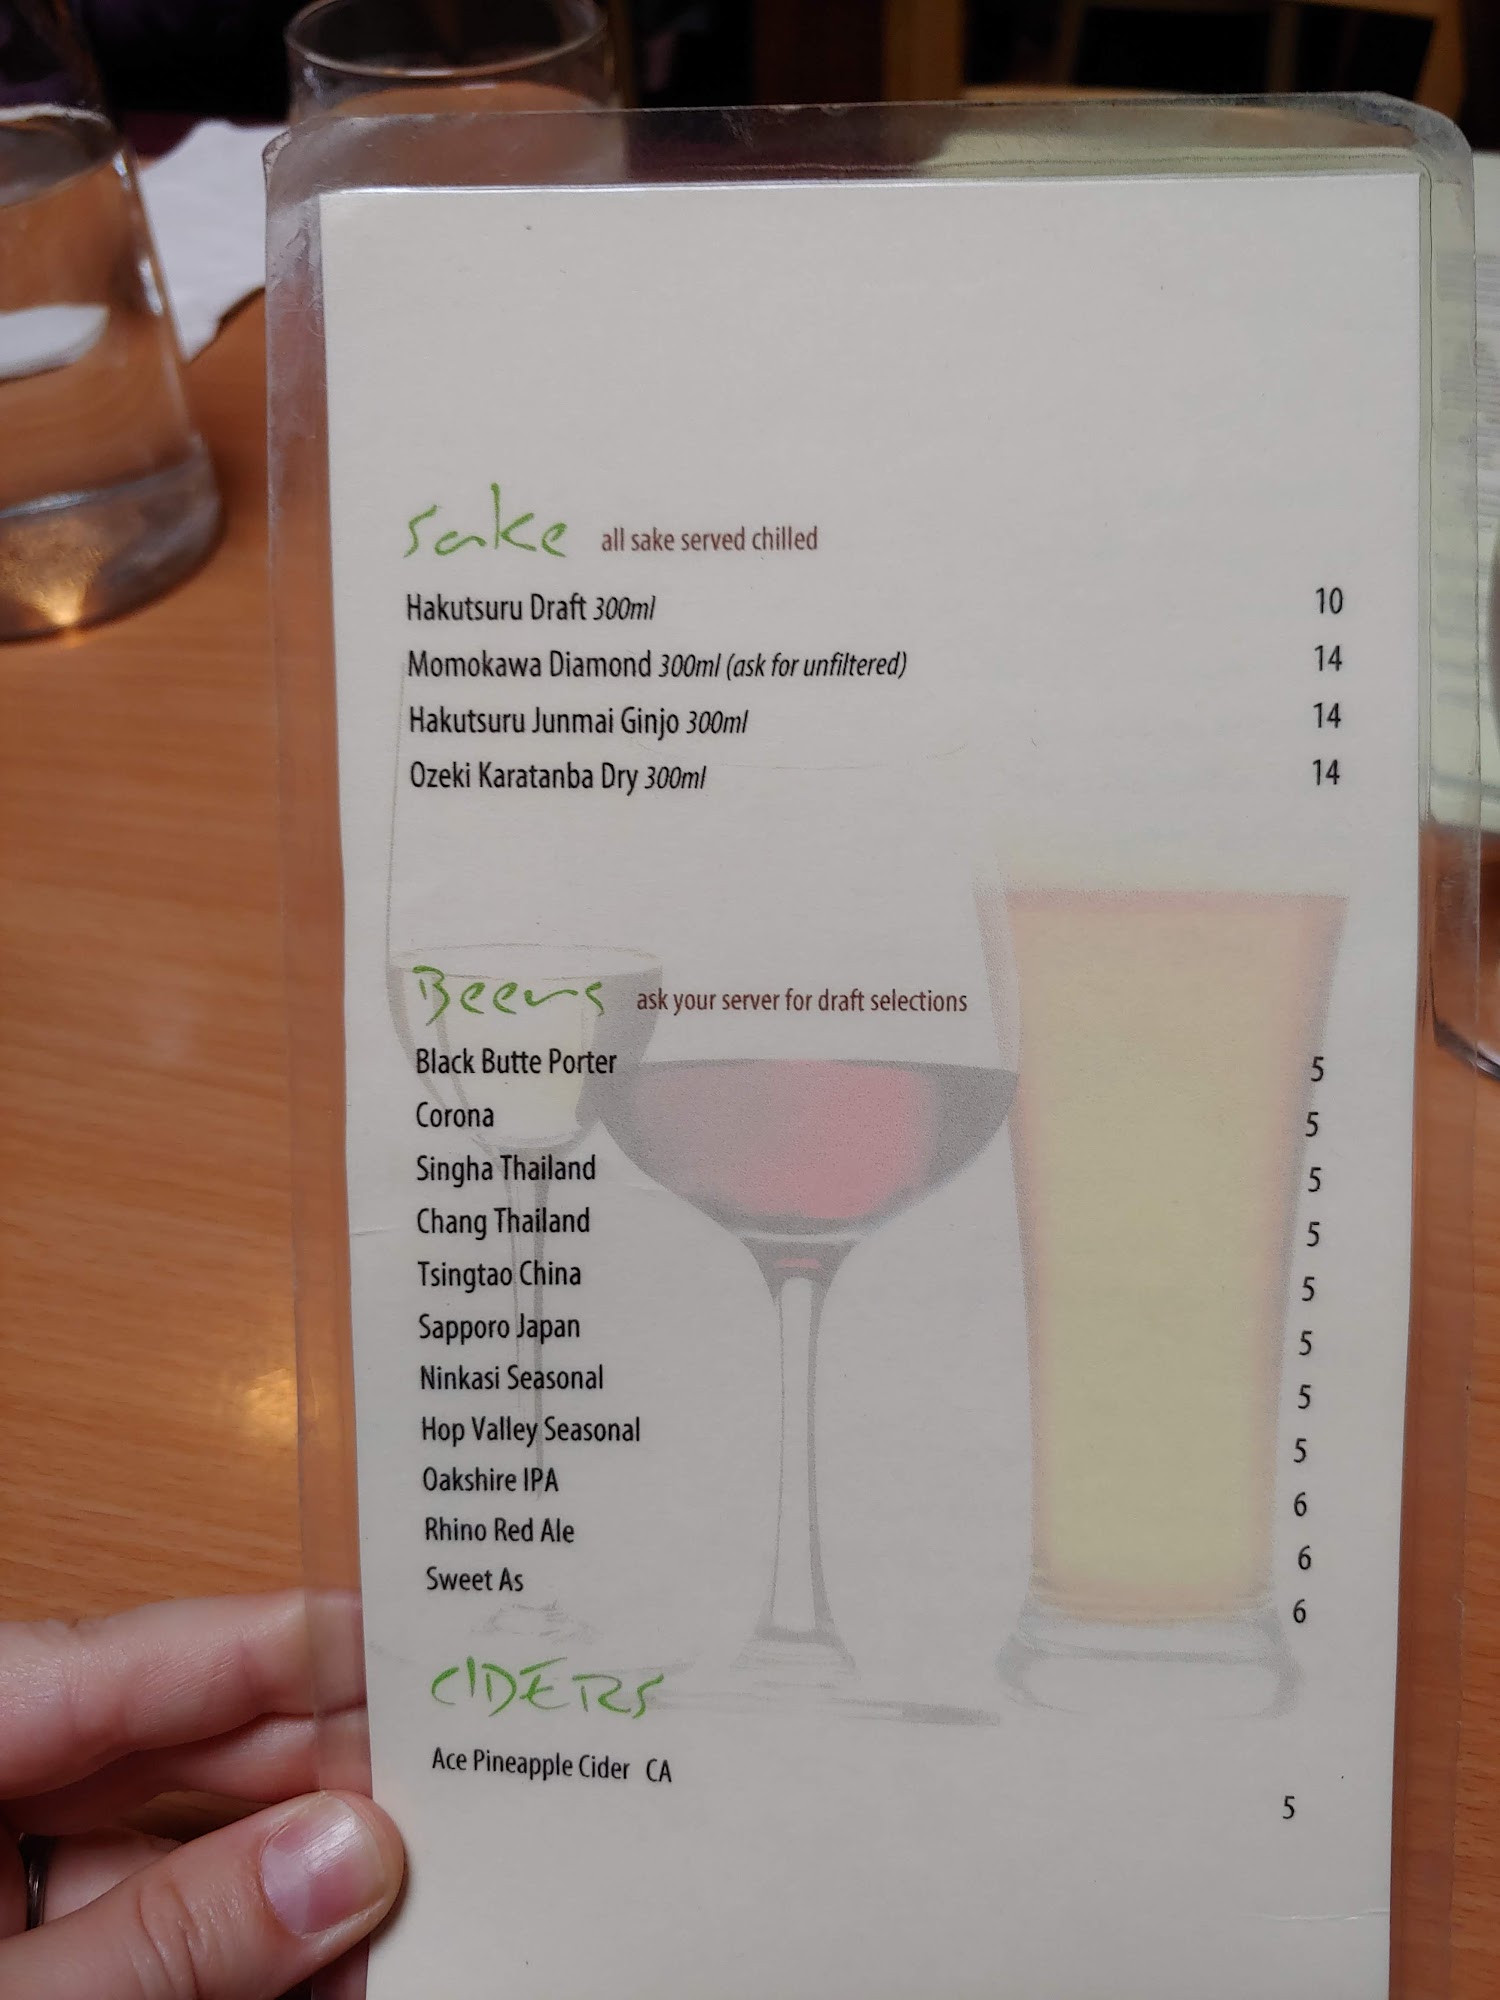 Sake all sake served chilled
Hakutsuru Draft 300ml 10
Momokawa Diamond 300ml (ask for unfiltered) 14
Hakutsuru Junmai Ginjo 300ml 14
Ozeki Karatanba Dry 300ml 14
Beers ask your server for draft selections
Black Butte Porter 5
Corona 5
Singha Thailand 5
Chang Thailand 5
Tsingtao China 5
Sapporo Japan 5
Ninkasi Seasonal 5
Hop Valley Seasonal 5
Oakshire IPA 6
Rhino Red Ale 6
Sweet As 6
CIDERS
Ace Pineapple Cider CA 5